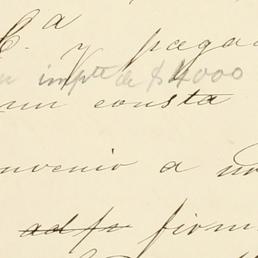 C.ª y pagad
impte de $4000
un consta
nvenio a no
adfs firm